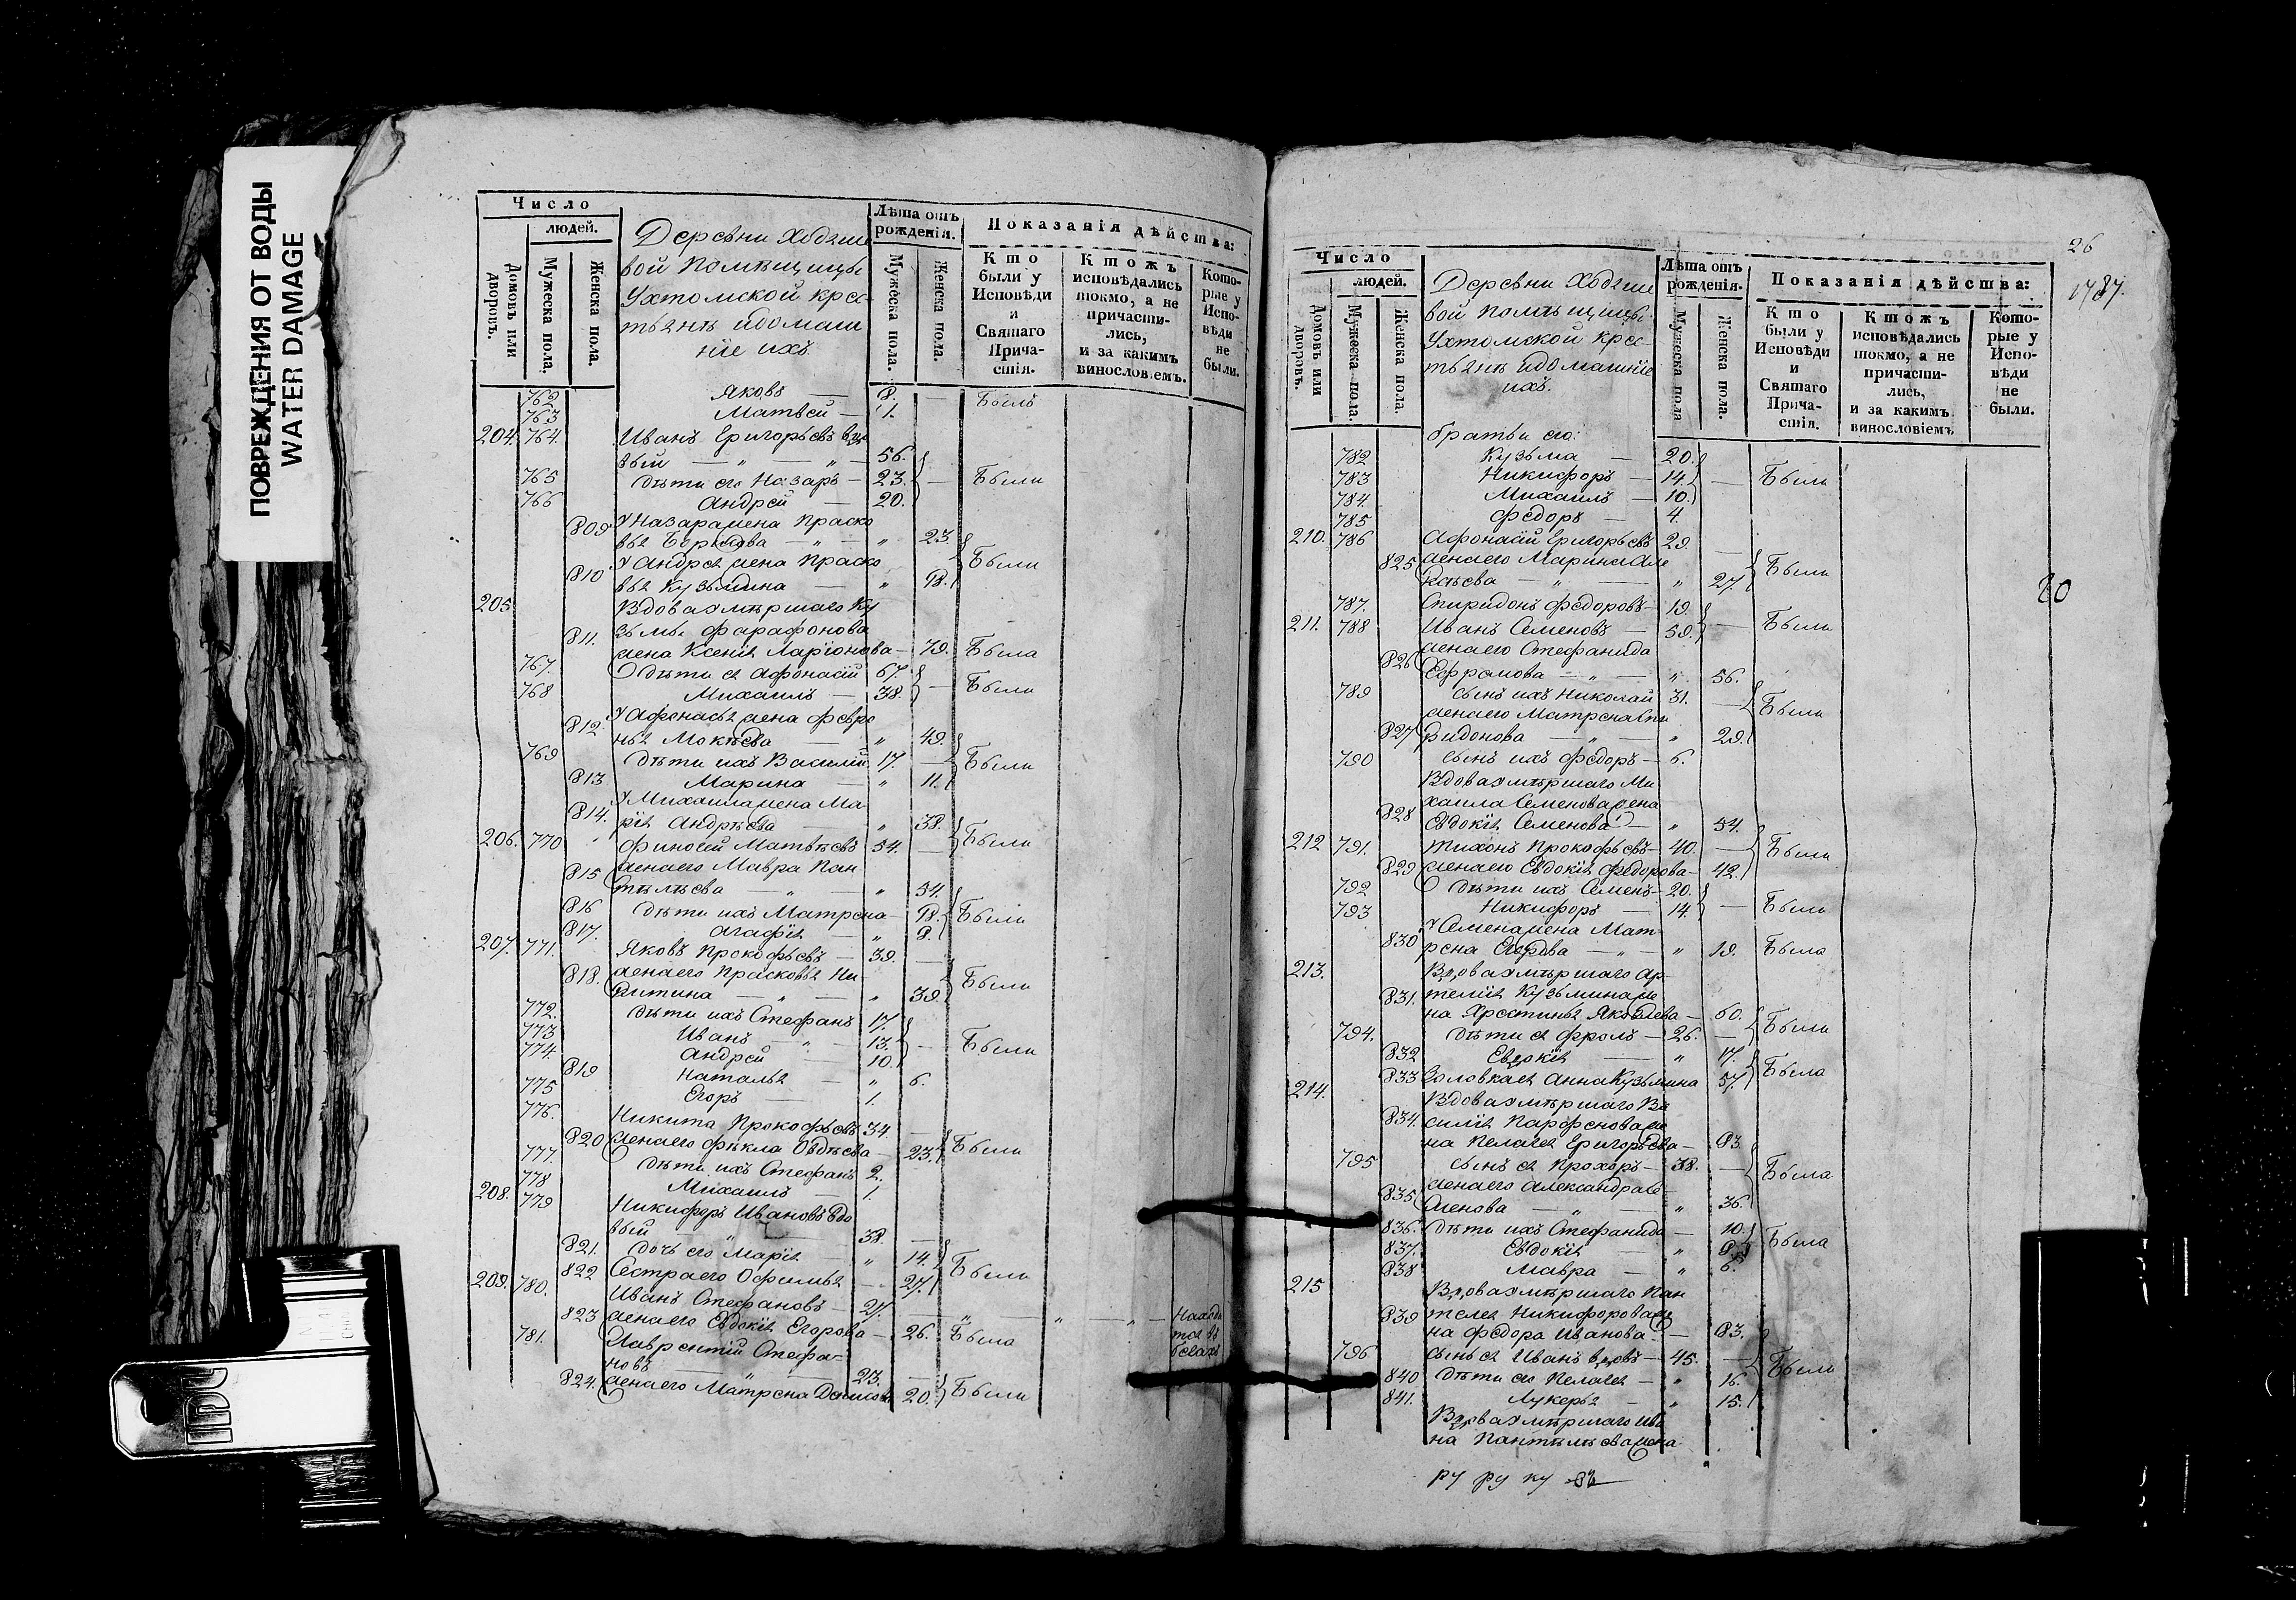 ПОВРЕЖДЕНИЯ ОТ ВОДЫ
WATER DAMAGE
Число
людей.
Домовъ или дворовъ.
Мужеска пола.
Женска пола.
Деревни Ходяше
вой помѣщицы
Ухтомской крес
тьянъ идомаш
ніе ихъ
Лѣта отъ рожденія.
Мужеска пола.
Женска пола.
Показанія дѣйства:
Кто были у Исповѣди и Святаго Причастія.
Ктожъ исповѣдались токмо, а не причастились, и за какимъ винословіемъ.
Которые у Исповѣди не были.
762 Яковъ — 8. — Былъ
763 Матвей — 1.
204. 764. Иванъ Григорьевъ вдо
вый — " — " — 56.
765 дѣти его Назаръ — 23. — Были
766 Андрей — 20.
809 У Назара жена Праско
вья — " — " 23.
810 У Андрея жена Праско Были
вья Кузьмина — " 18.
205. Вдова умѣршаго Ку
зьмы Фарафонова
811. жена Ксенія Ларіонова — 79. Была
767. дѣти ея Афонасій 67.
768 Михаилъ — 38. — Были
812. У Афонасья жена Февро
нья Мокѣева — " 49.
769 дѣти ихъ Василій 17. — Были
813 Марина — " 11.
У Михаила жена Ма
814. рія Андрѣева — " 38.
206. 770 Финогей Матвѣевъ 54. — Были
815 жена его Мавра Пан
тѣлѣева — " — " 54.
816 дѣти ихъ Матрена — 18. Были
817. Агафія — " 8.
207. 771. Яковъ Прокофьевъ — 39. —
818. жена его Прасковья Ни
китина — " — " 39. Были
772. дѣти ихъ Стефанъ 17.
773 Иванъ — " — 13. — Были
774 Андрей 10.
819 Наталья — " 6.
775 Егоръ — 1.
776. Никита Прокофьевъ 34. —
820 жена его Фѣкла Овдѣева — 23. Были
777. дѣти ихъ Стефанъ 2.
778 Михаилъ — 1.
208. 779 Никифоръ Ивановъ вдо
вый — " 38. —
821. дочь его Марія " 14.
822 Сестра его Офимья — 27. Были
209. 780. Иванъ Стефановъ — 27. — " — " — " —
823 жена его Евдокія Егорова — 26. Была
781. Лаврентій Стефа-
новъ — " — 23. —
824. жена его Матрена 20. Были
26
1787.
Число
людей.
Домовъ или дворовъ.
Мужеска пола.
Женска пола.
Деревни Ходяше
вой помѣщицы
Ухтомской крес-
тьянъ идомашніе
ихъ.
Лѣта отъ рожденія.
Мужеска пола
Женска пола.
Показанія дѣйства:
Кто были у Исповѣди и Святаго Причастія.
Ктожъ исповѣдались токмо, а не причастились, и за какимъ винословіемъ
Которые у Исповѣди не были.
братьи его:
782 Кузьма — 20.
783 Никифоръ — 14. — Были
784. Михаилъ — 10.
785 Федоръ — 4.
210. 786 Афонасій Григорьевъ 29. —
825 жена его Марина Але Были
ксѣева — " — " 27.
787. Спиридонъ Федоровъ — 19.
211. 788 Иванъ Семеновъ — 59. — Были
жена его Стефанида
826 Ефремова — " — " 56.
789 сынъ ихъ Николай 31. — Были
жена его Матрена Спи
827 ридонова — " — " 29.
790 сынъ ихъ Федоръ — 6.
Вдова умѣршаго Ми
хаила Семенова жена
828 Евдокія Семенова — " 54.
212 791. Тихонъ Прокофьевъ — 40. — Были
829 жена его Евдокія Федорова — 42.
792 дѣти ихъ Семенъ — 20.
793 Никифоръ — 14. — Были
У Семена жена Мат-
830 рена — " — " 19. Была
213. Вдова умѣршаго Ар-
831. темія Кузьмина же
на Хрестинья Яковлева — 60.
794. дѣти ея Фролъ — 26. — Были
832 Евдокія — " 17.
833 Золовка ея Анна Кузьмина 57. Была
214. Вдова умѣршаго Ва
834. силія Парфенова же
на Пелагея Григорьева — 83.
795 сынъ ея Прохоръ — 38. — Была
жена его Александра Се-
835 менова — " — " 36.
836. дѣти ихъ Стефанида — 10.
837. Евдокія — " 8. Была
838 Мавра — " 6.
215 Вдова умѣршаго Пан
839 телея Никифорова же
на Федора Иванова — 83.
796 сынъ ея Иванъ вдовъ — 45. — Были
840 дѣти его Пелагея — " 16.
841. Лукерья — " 15.
Вдова умѣршаго Ива
на Пантѣлѣева жена
80